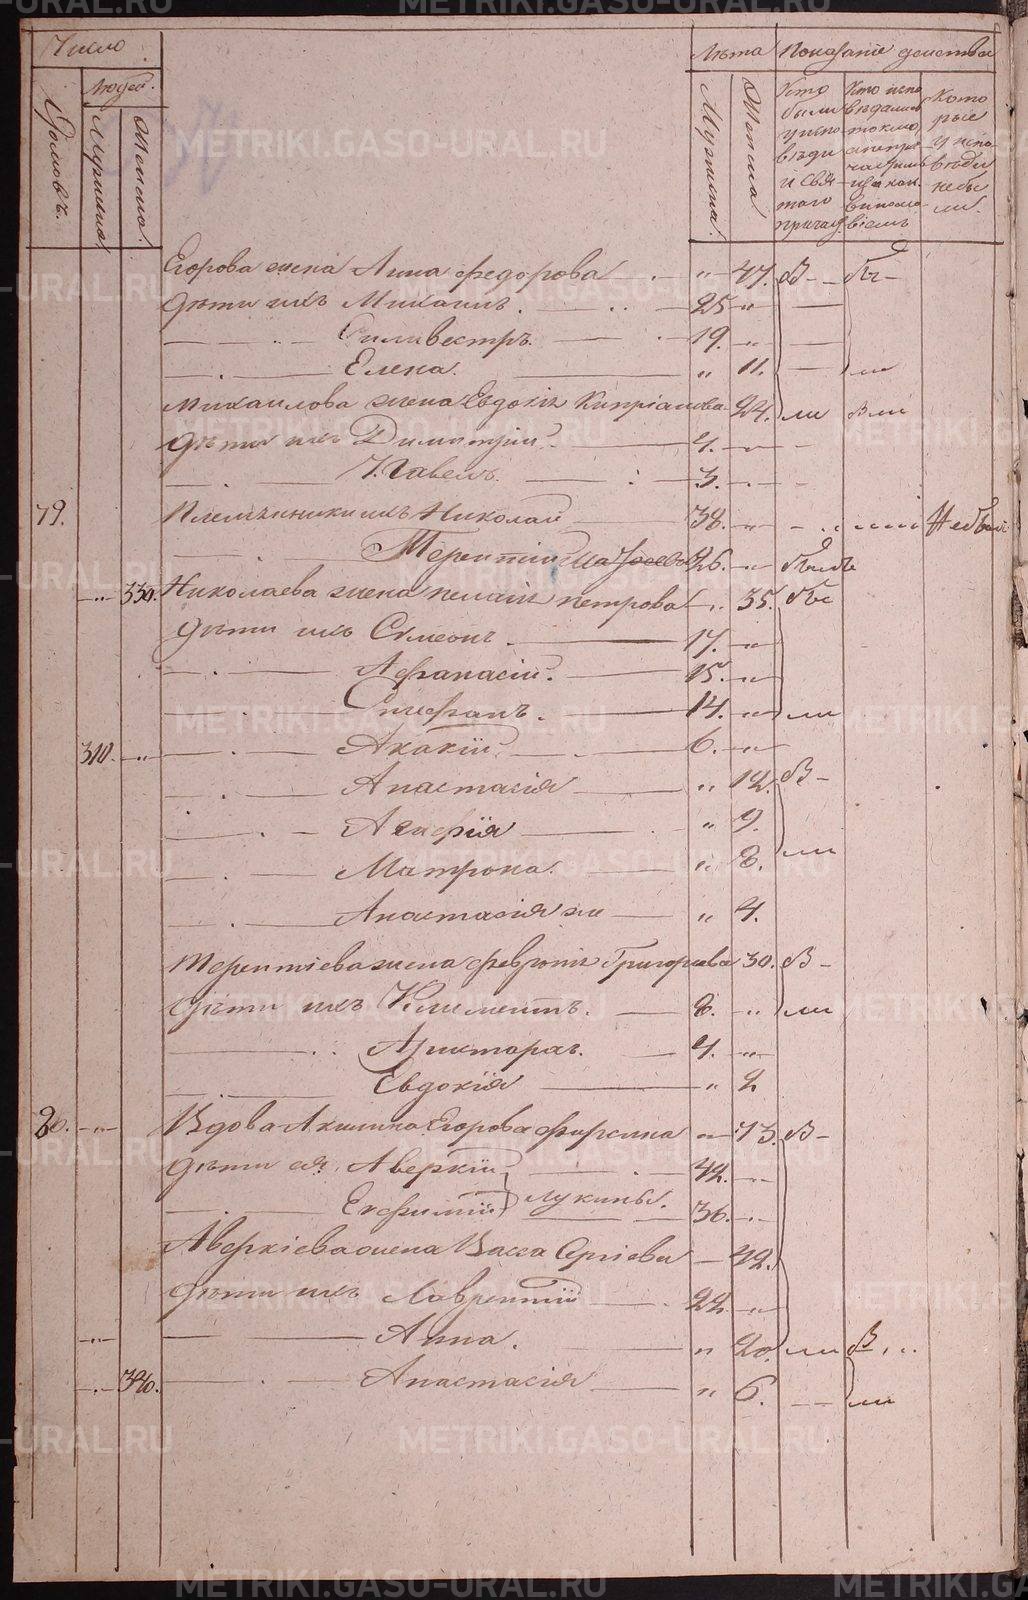 Число
Людей.
Домовъ.
Мужеска
Женска.
Лѣта
Мужеска.
Женска
Показаніе действа
Кто были у исповѣди и свя-таго причаст
Кто испо-вѣдался токмо, а не при-частилъ-ся и как. винословіемъ
Кото-рые у испо-вѣди не бы-ли.
Егорова жена Анна Федорова " 47. В
дѣти ихъ Михаилъ. 25 "
Силивестръ. 19. "
Елена. " 11. ли
Михаилова жена Евдокія Кипріанова 24. ли ли
дѣти ихъ Димитрій. 4. "
Павелъ. 3. "
79. Племянники ихъ Николай 38. " Не был
Терентій 26. " былъ
" 330. Николаева жена Пелагія Петрова " 35.
дѣти ихъ Симеонъ. 17. "
Афанасій. 15. "
Епифанъ. 14. " ли
310. " Акакій. 6. "
Анастасія " 12. В
Агафія " 9.
Матрона. " 8. ли
Анастасія же " 4.
Терентіева жена Февронія Григорьева 30. В
дѣти ихъ Климентъ. 8. " ли
4. "
Евдокія " 2
80. " Вдова Акилина Егорова Фирсина " 73. В
дѣти ея Аверкій 42. "
Евфимій Лукины. 36. "
Аверкіева жена Васса Сергіева 42.
дѣти ихъ Лаврентій 22 "
" Анна. " 20. ли В
" 340. Анастасія " 6. ли
METRIKI.GASO-URAL.RU